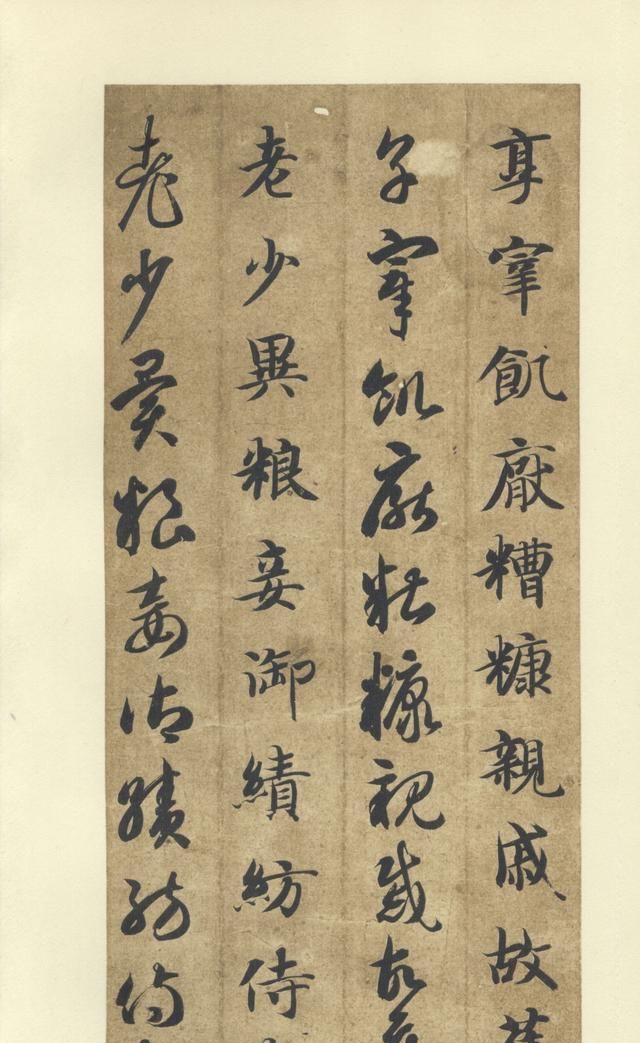 享宰飢厭糟糠親戚故
享宰飢厭糟糠親戚故
老少異粮妾御績紡侍
老少異粮妾御績紡侍